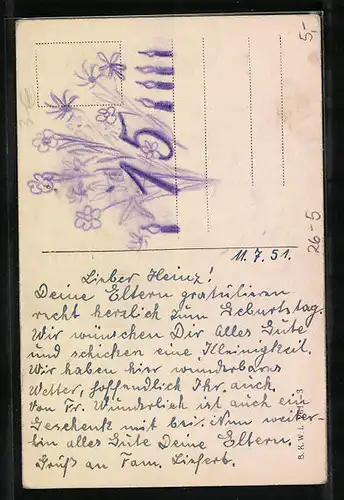 5,-
15
26-5
11.7.51.
Lieber Heinz!
Deine Eltern gratulieren
recht herzlich zum Geburtstag.
Wir wünschen Dir alles Gute
und schicken eine Kleinigkeit.
Wir haben hier wunderbares
Wetter, hoffendlich Ihr auch.
Von Fr. Wunderlich ist auch ein
Geschenk mit bei. Nun weiter-
hin alles Gute Deine Eltern.
Gruß an Fam.
B.K.W.I.